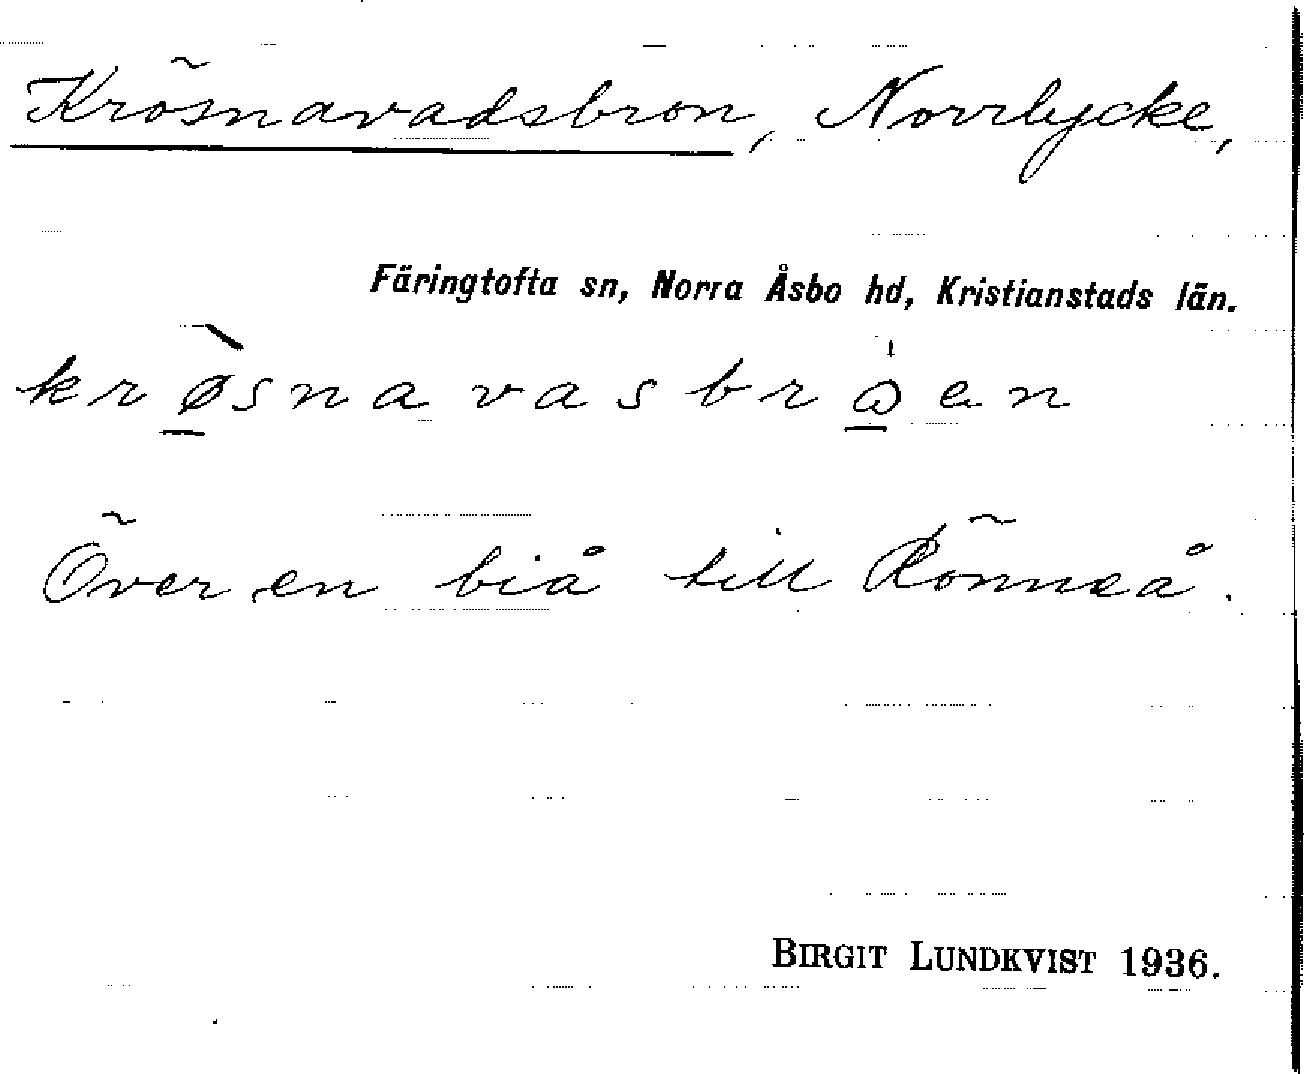 Krösnavadsbron, Norrlycke,
Färingtofta sn, Norra Åsbo hd, Kristianstads län.
krø̀snavasbrɷ́en
Över en biå till Rönneå.
BIRGIT LUNDKVIST 1936.